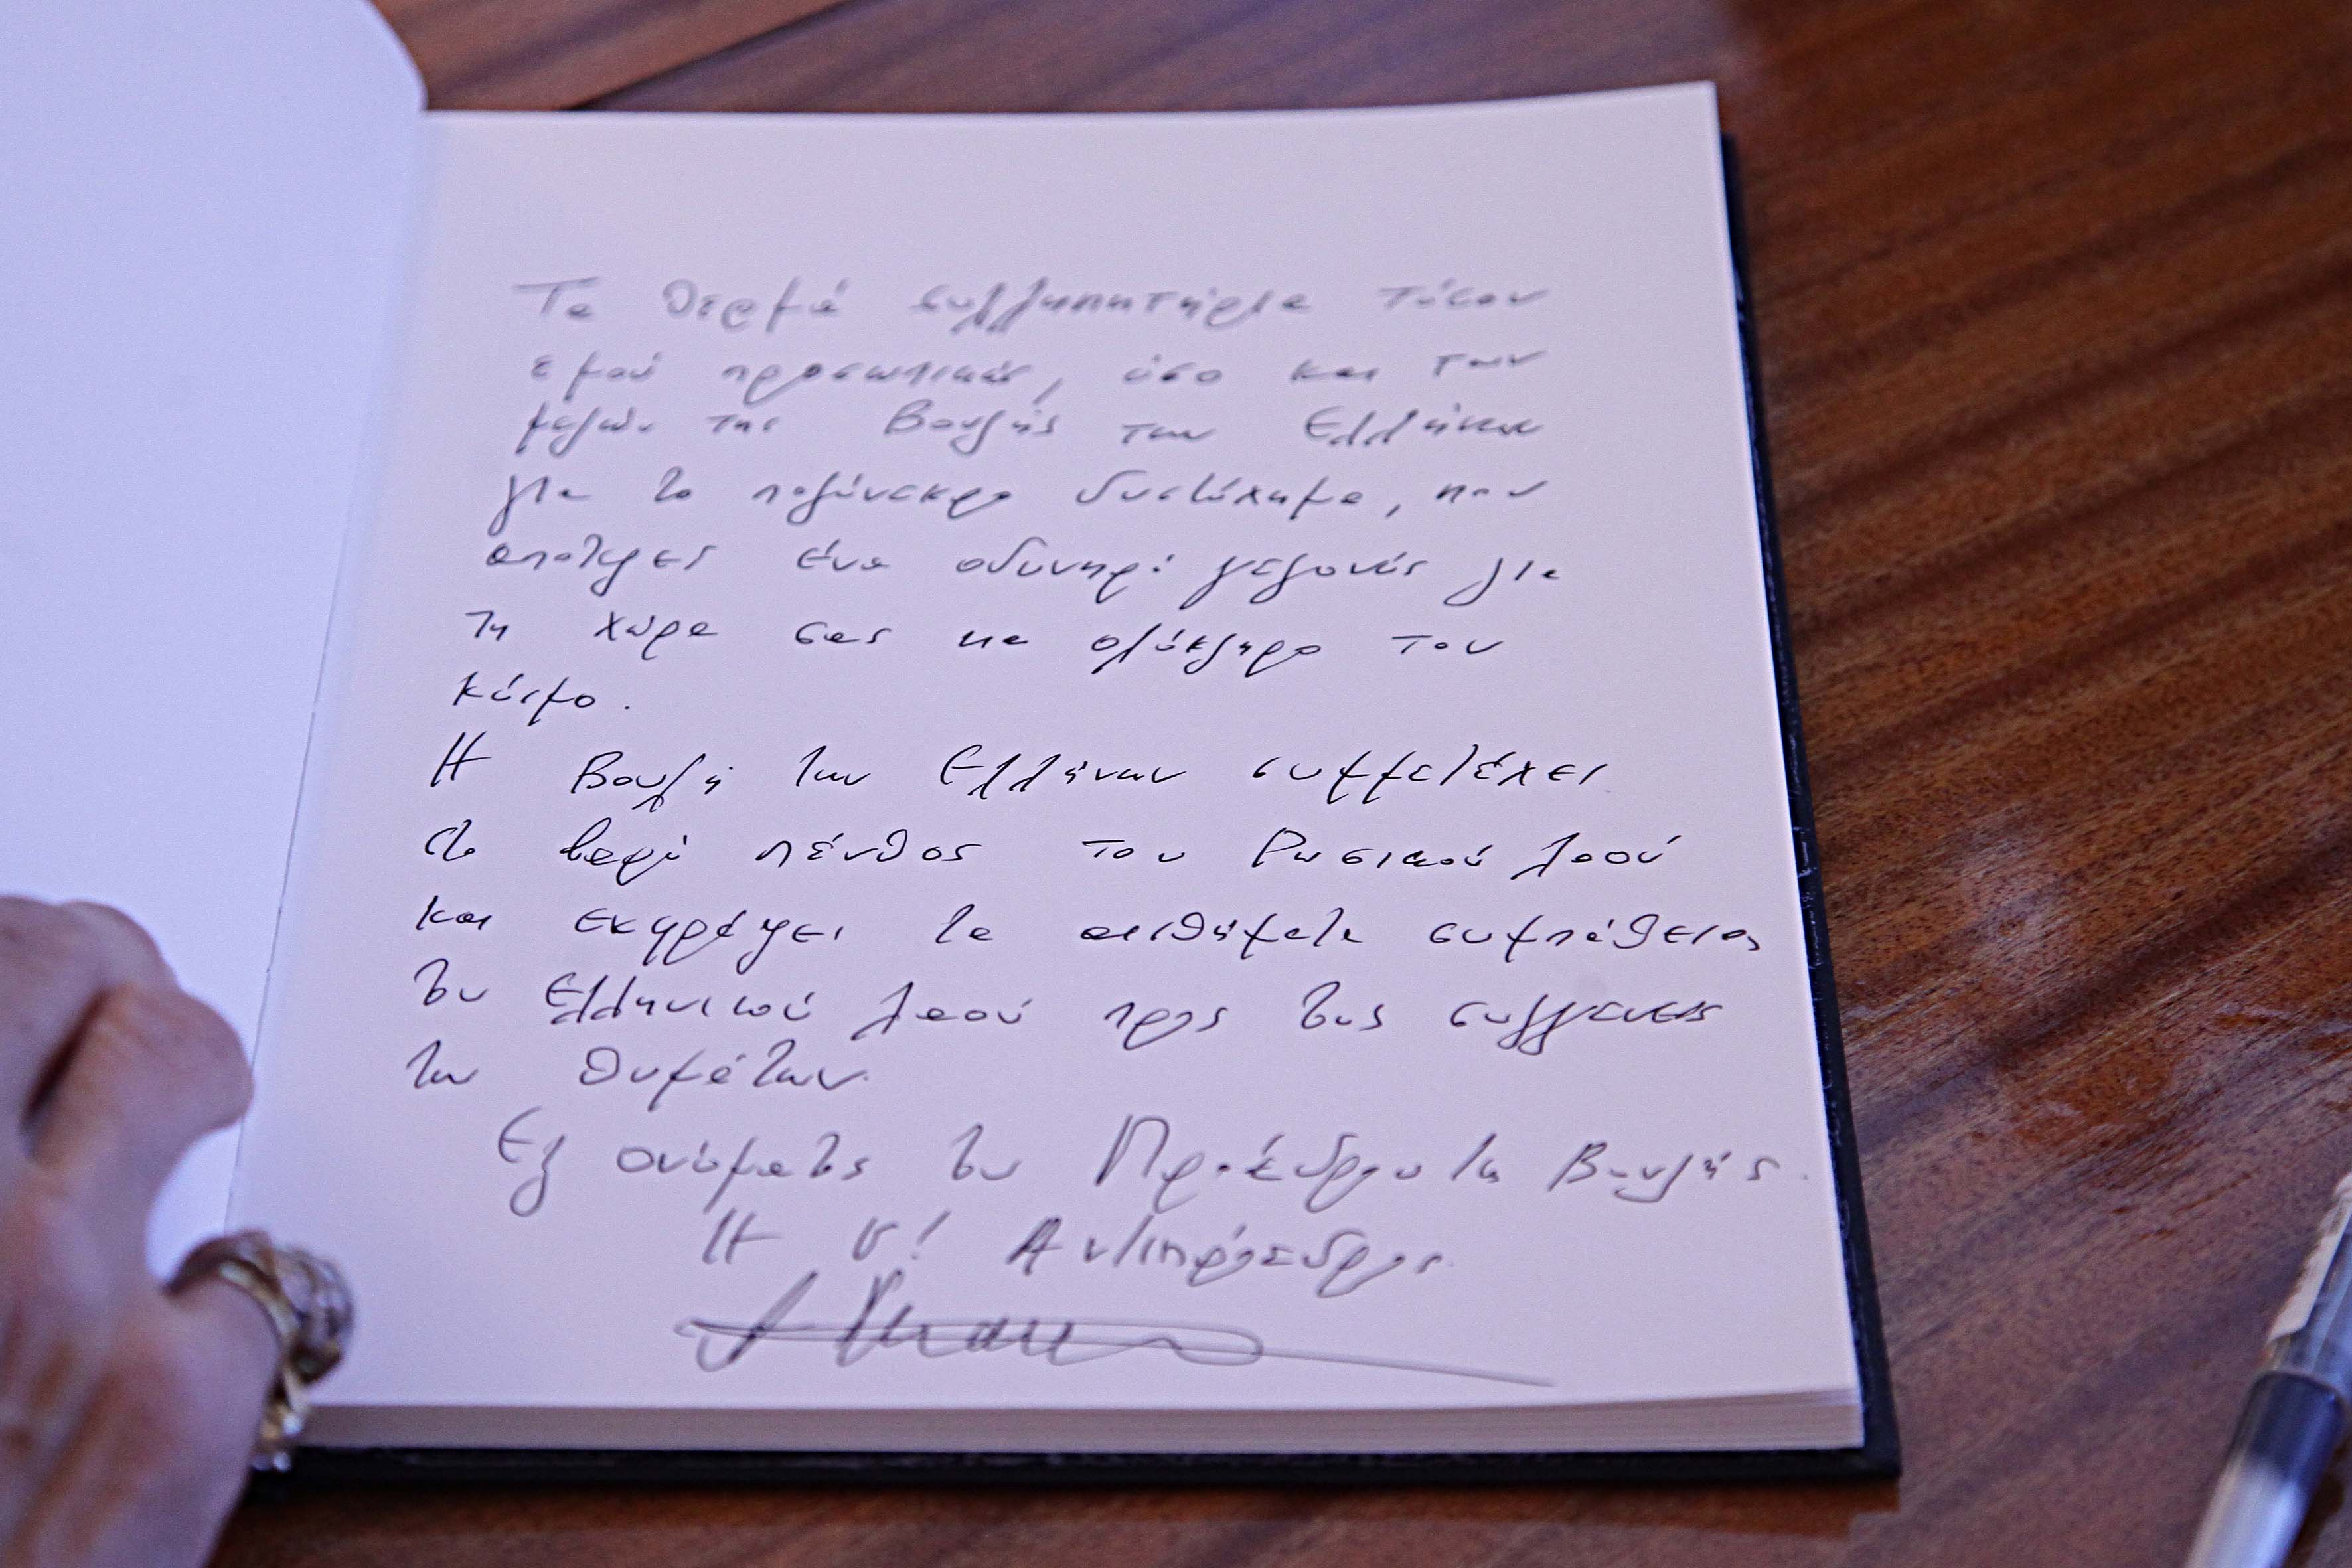 Τα θερμά συλλυπητήρια τόσον
εμού προσωπικώς, όσο και των
μελών της Βουλής των Ελλήνων
για το πολύνεκρο δυστύχημα, που
αποτελεί ένα οδυνηρό γεγονός για
τη χώρα σας και ολόκληρο τον
κόσμο.
Η Βουλή των Ελλήνων συμμετέχει
στο βαρύ πένθος του Ρωσικού λαού
και εκφράζει τα αισθήματα συμπάθειας
του Ελληνικού λαού προς τους συγγενείς
των θυμάτων.
Εξ ονόματος του Προέδρου της Βουλής.
Η Αντιπρόεδρος